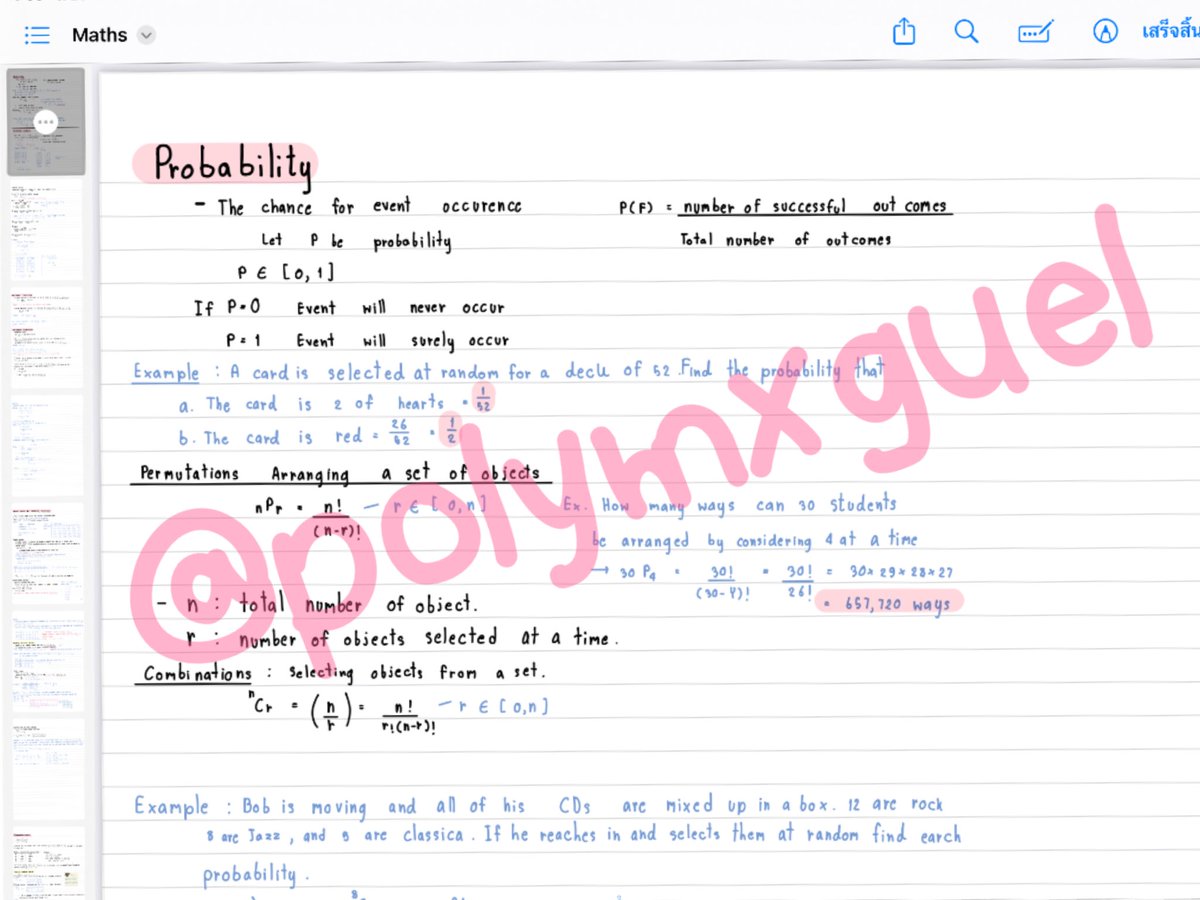 Maths
เสร็จสิ้น
Probability
- The chance for event occurence
P(F) = number of successful out comes
Total number of outcomes
Let P be probability
P ∈ [0,1]
If P=0 Event will never occur
P=1 Event will surely occur
Example : A card is selected at random for a deck of 52 .Find the probability that
a. The card is 2 of hearts = 1/52
b. The card is red = 26/52 = 1/2
Permutations Arranging a set of objects
nPr = n!/(n-r)! - r ∈ [0,n]
Ex. How many ways can 30 students
be arranged by considering 4 at a time
→ 30 P4 = 30!/(30-4)! = 30!/26! = 30×29×28×27
= 657,720 ways
- n : total number of object.
r : number of objects selected at a time.
Combinations : Selecting objects from a set.
nCr = (n/r) = n!/r!(n-r)! - r ∈ [0,n]
Example : Bob is moving and all of his CDs are mixed up in a box. 12 are rock
8 are Jazz, and 9 are classica. If he reaches in and selects them at random find earch
probability.
@polymxguel